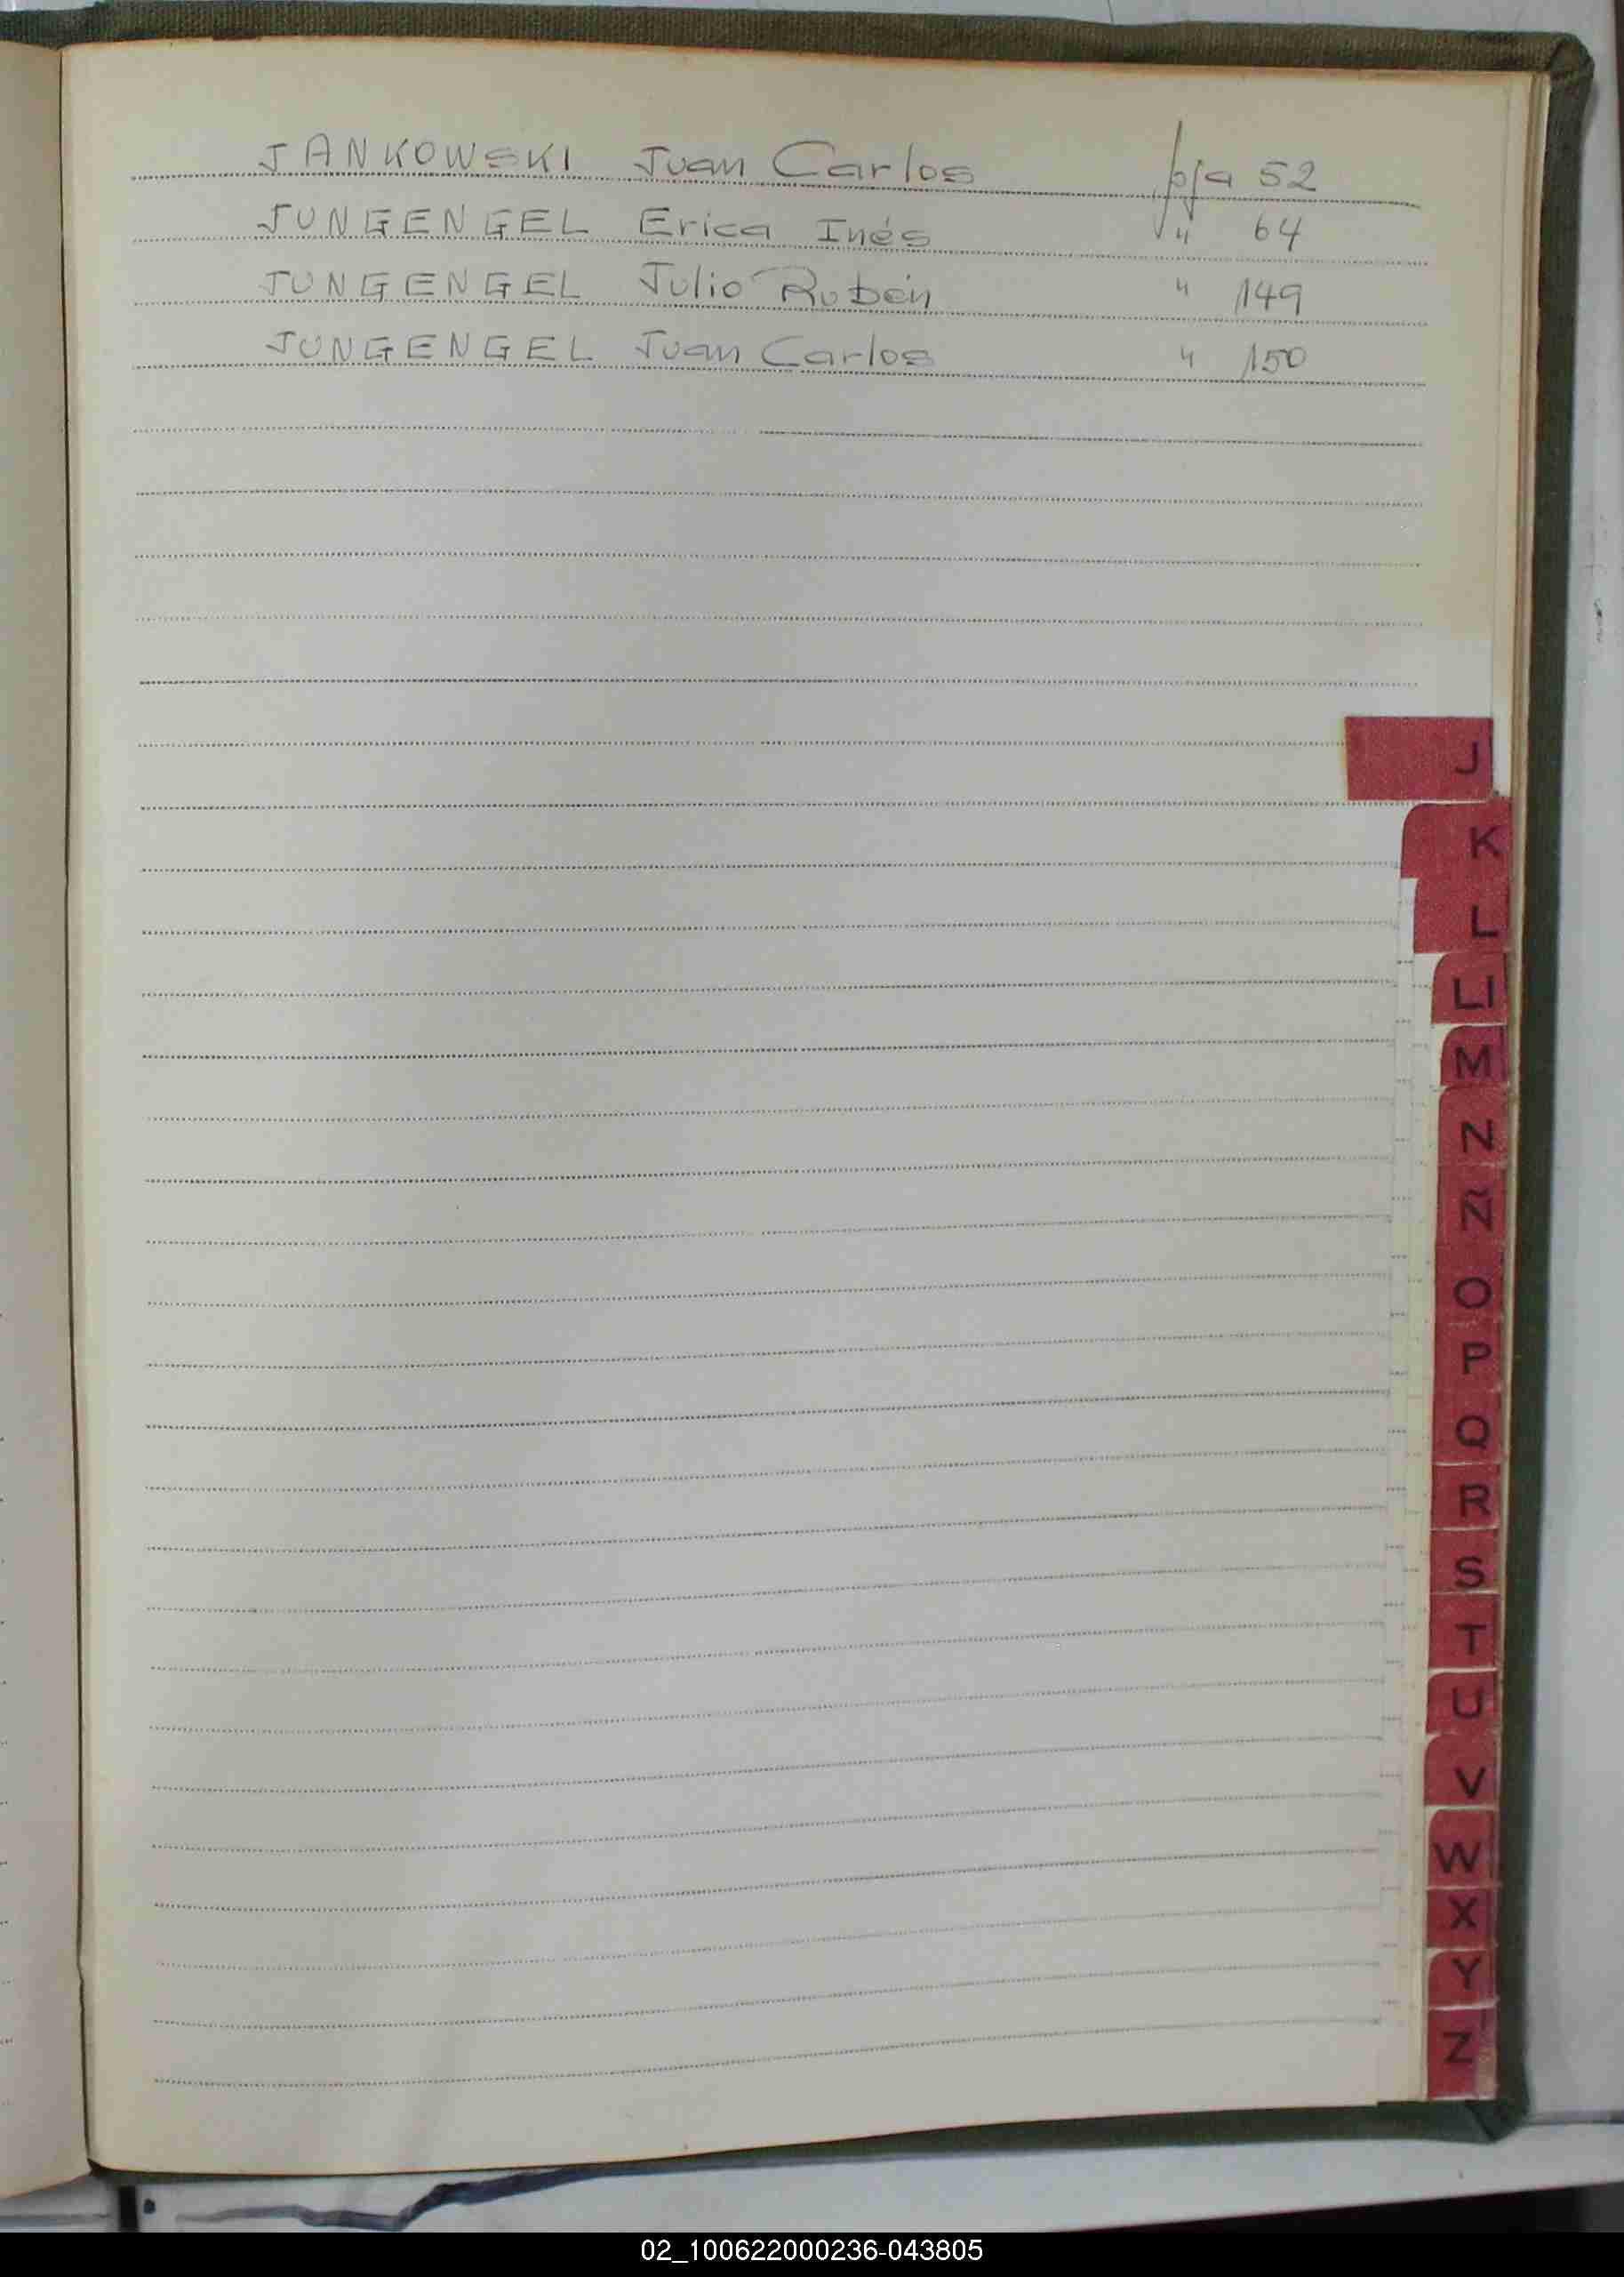 JANKOWSKI Juan Carlos pja 52
JUNGENGEL Erica Inés " 64
JUNGENGEL Julio Rubén " 149
JUNGENGEL Juan Carlos " 150
J
K
L
Ll
M
N
Ñ
O
P
Q
R
S
T
U
V
W
X
Y
Z
02_100622000236-043805